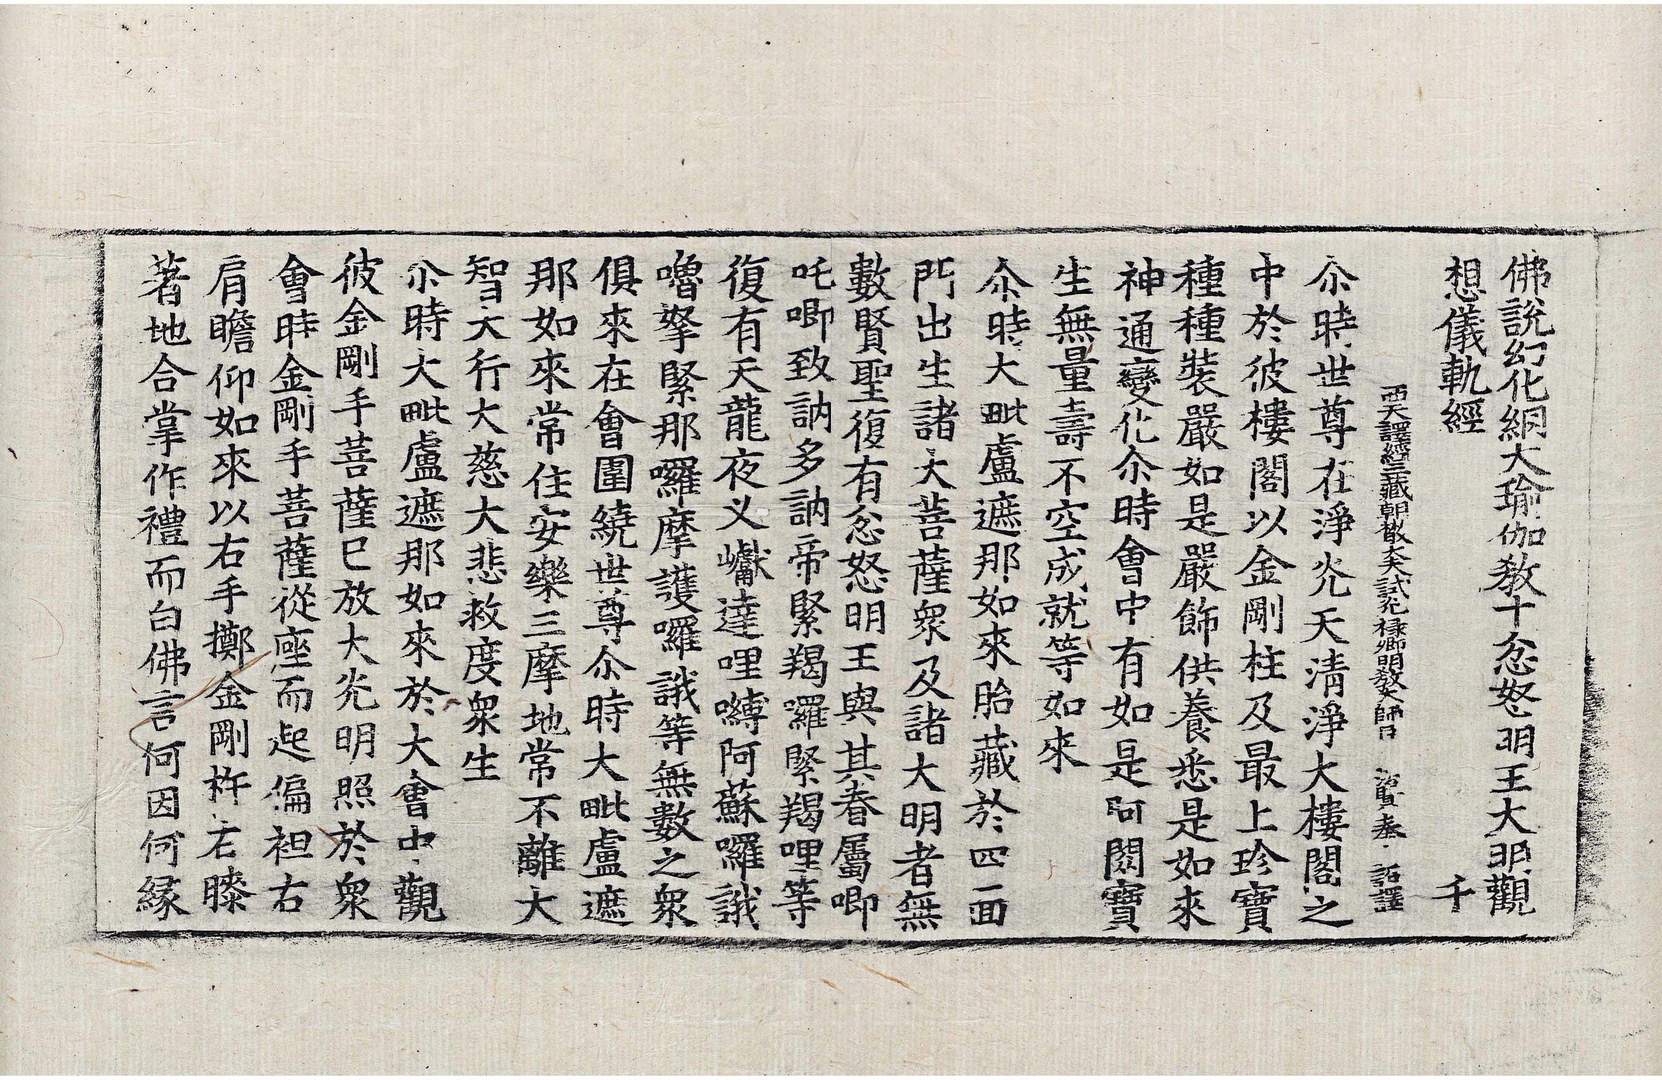 佛說幻化網大瑜伽教十忿怒明王大明觀
想儀軌經 千
西天譯經三藏朝散大夫試光祿卿明教大師臣 法賢 奉 詔譯
尒時世尊在淨光天清淨大樓閣之
中於彼樓閣以金剛柱及最上珍寶
種種裝嚴如是嚴飾供養悉是如來
神通變化尒時會中有如是阿閦寶
生無量壽不空成就等如來
尒時大毗盧遮那如來胎藏於四面
門出生諸大菩薩衆及諸大明者無
數賢聖復有忿怒明王與其眷屬唧
吒唧致訥多訥帝緊羯囉緊羯哩等
復有天龍夜叉巘達哩嚩阿蘇囉誐
嚕拏緊那囉摩護囉誐等無數之衆
俱來在會圍繞世尊尒時大毗盧遮
那如來常住安樂三摩地常不離大
智大行大慈大悲救度衆生
尒時大毗盧遮那如來於大會中觀
彼金剛手菩薩已放大光明照於衆
會時金剛手菩薩從座而起偏袒右
肩瞻仰如來以右手擲金剛杵右膝
著地合掌作禮而白佛言何因何緣